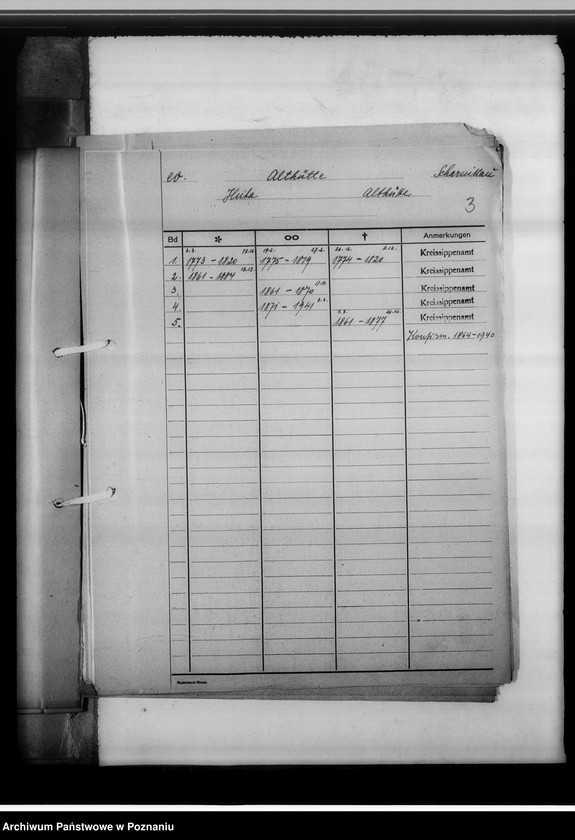 ev. Althütte Scharnikau
Huta Althütte
3
Bd * ∞ † Anmerkungen
1. 1773 – 1820 1775 – 1819 1774 – 1820 Kreissippenamt
2. 1861 – 1884 Kreissippenamt
3. 1861 – 1870 Kreissippenamt
4. 1871 – 1941 Kreissippenamt
5. 1861 – 1877 Kreissippenamt
Konfirm. 1864–1940
Archiwum Państwowe w Poznaniu